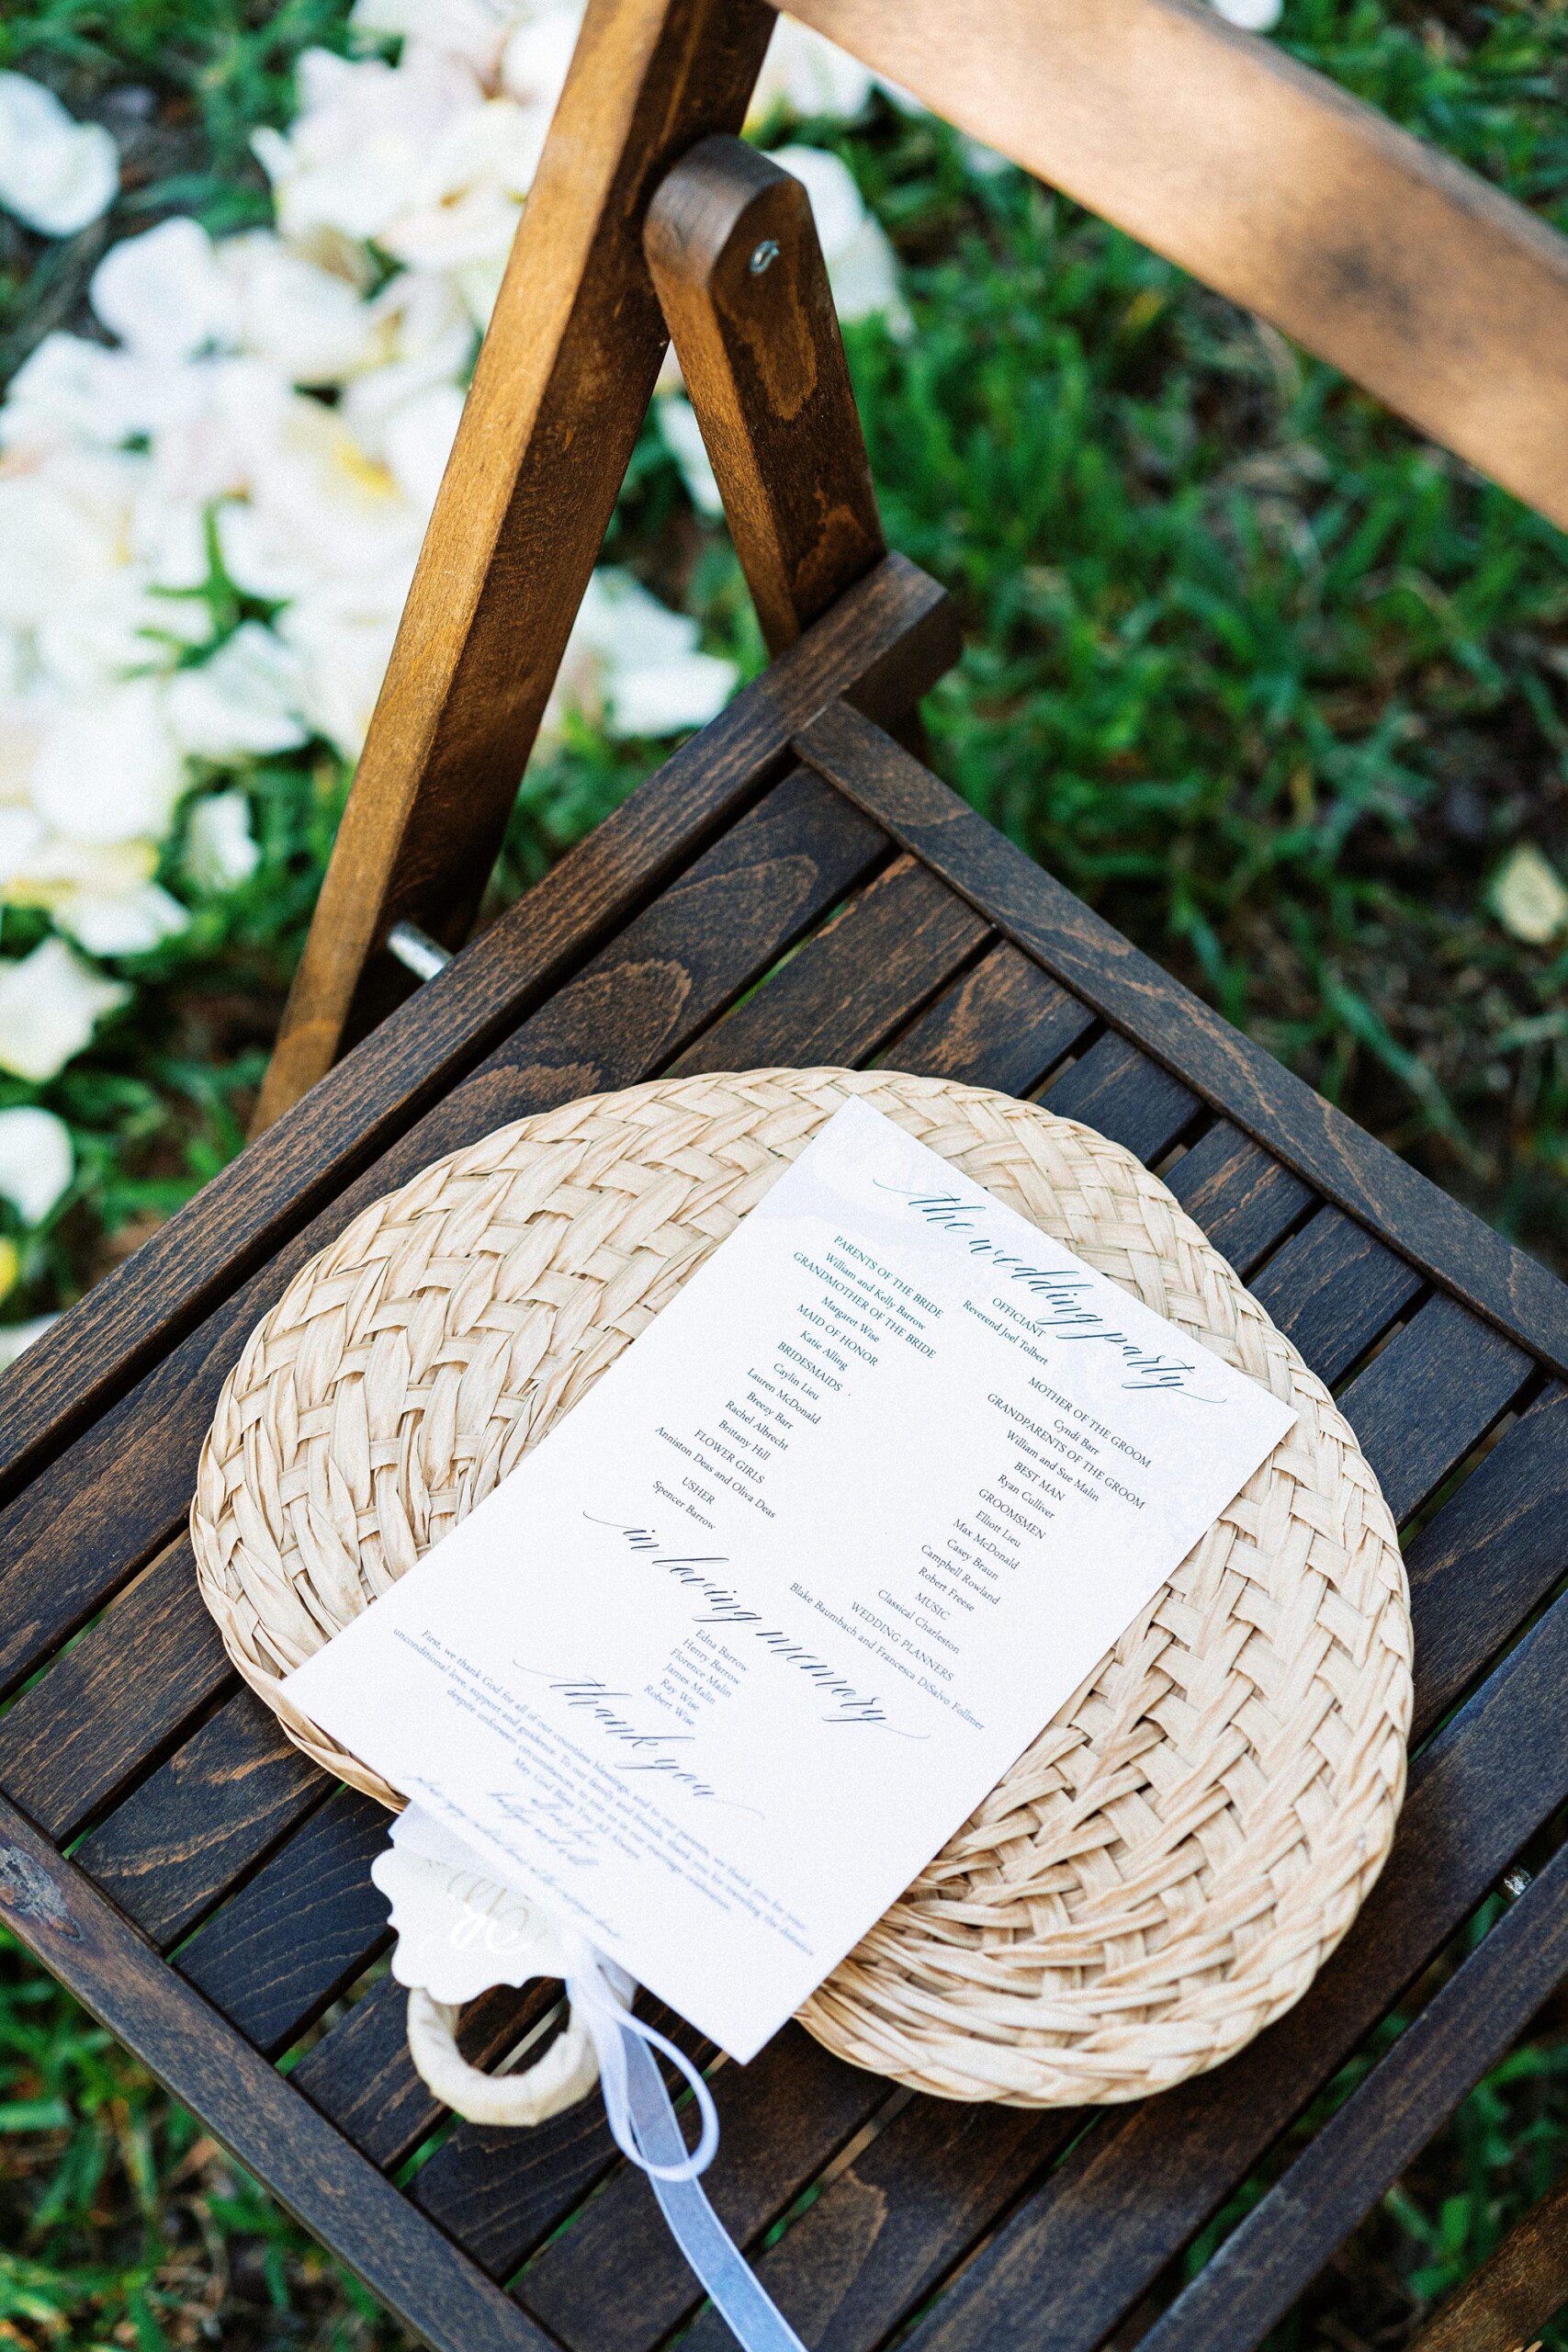 the wedding party
PARENTS OF THE BRIDE
William and Kelly Barrow
GRANDMOTHER OF THE BRIDE
Margaret Wise
MAID OF HONOR
Katie Alling
BRIDESMAIDS
Caylin Lieu
Lauren McDonald
Breezy Barr
Rachel Albrecht
Brittany Hill
FLOWER GIRLS
Anniston Deas and Oliva Deas
USHER
Spencer Barrow
OFFICIANT
Reverend Joel Tolbert
MOTHER OF THE GROOM
Cyndi Barr
GRANDPARENTS OF THE GROOM
William and Sue Malin
BEST MAN
Ryan Culliver
GROOMSMEN
Elliott Lieu
Max McDonald
Casey Braun
Campbell Rowland
Robert Freese
MUSIC
Classical Charleston
WEDDING PLANNERS
Blake Baumbach and Francesca DiSalvo Follmer
in loving memory
Edna Barrow
Henry Barrow
Florence Malin
James Malin
Ray Wise
Robert Wise
thank you
First, we thank God for all of our countless blessings, and to our parents, we thank you for your
unconditional love, support and guidance. To our family and friends, thank you for traveling the distance
despite unforeseen circumstances, to join us in our marriage celebration.
May God Bless You All